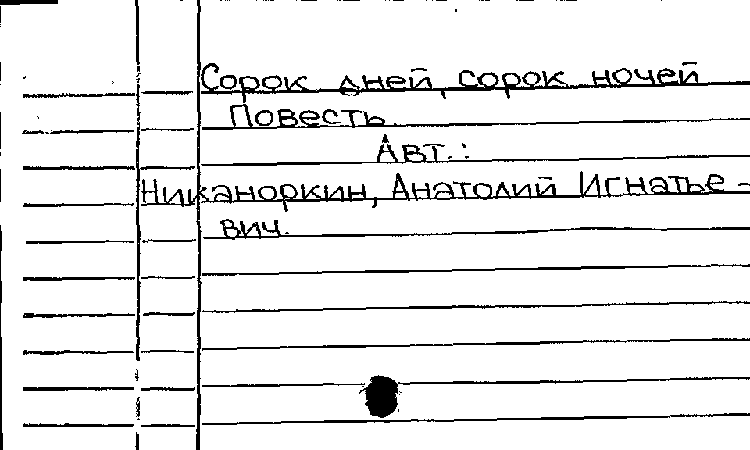 Сорок дней, сорок ночей
Повесть.
Авт.:
Никаноркин, Анатолий Игнатье-
вич.